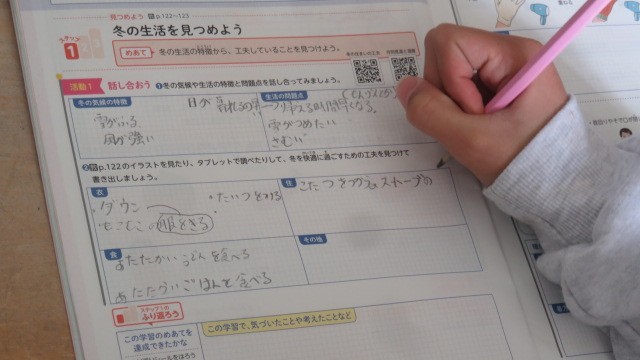 見つめよう p.122~123
ステップ1
冬の生活を見つめよう
めあて 冬の生活の特徴から、工夫していることを見つけよう。
活動1 話し合おう ❶冬の気候や生活の特徴と問題点を話し合ってみましょう。
冬の気候の特徴
日が
雪がふる
風が強い
生活の問題点
くなる。
雪がつめたい
さむい
❷ p.122のイラストを見たり、タブレットで調べたりして、冬を快適に過ごすための工夫を見つけて
書き出しましょう。
衣
ダウン
もこもこの服をきる
・たいつをはる
住
こたつをつかう。ストーブの
食
あたたかいうどんを食べる
あたたかいごはんを食べる
その他
ステップ1の
ふり返ろう
この学習のめあてを
達成できたかな
この学習で、気づいたことや考えたことなど